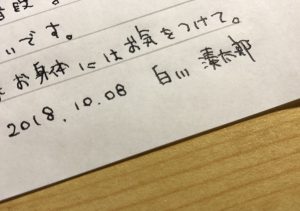 段。
いです。
お身体にはお気をつけて。
2018.10.08 白川 湊太郎